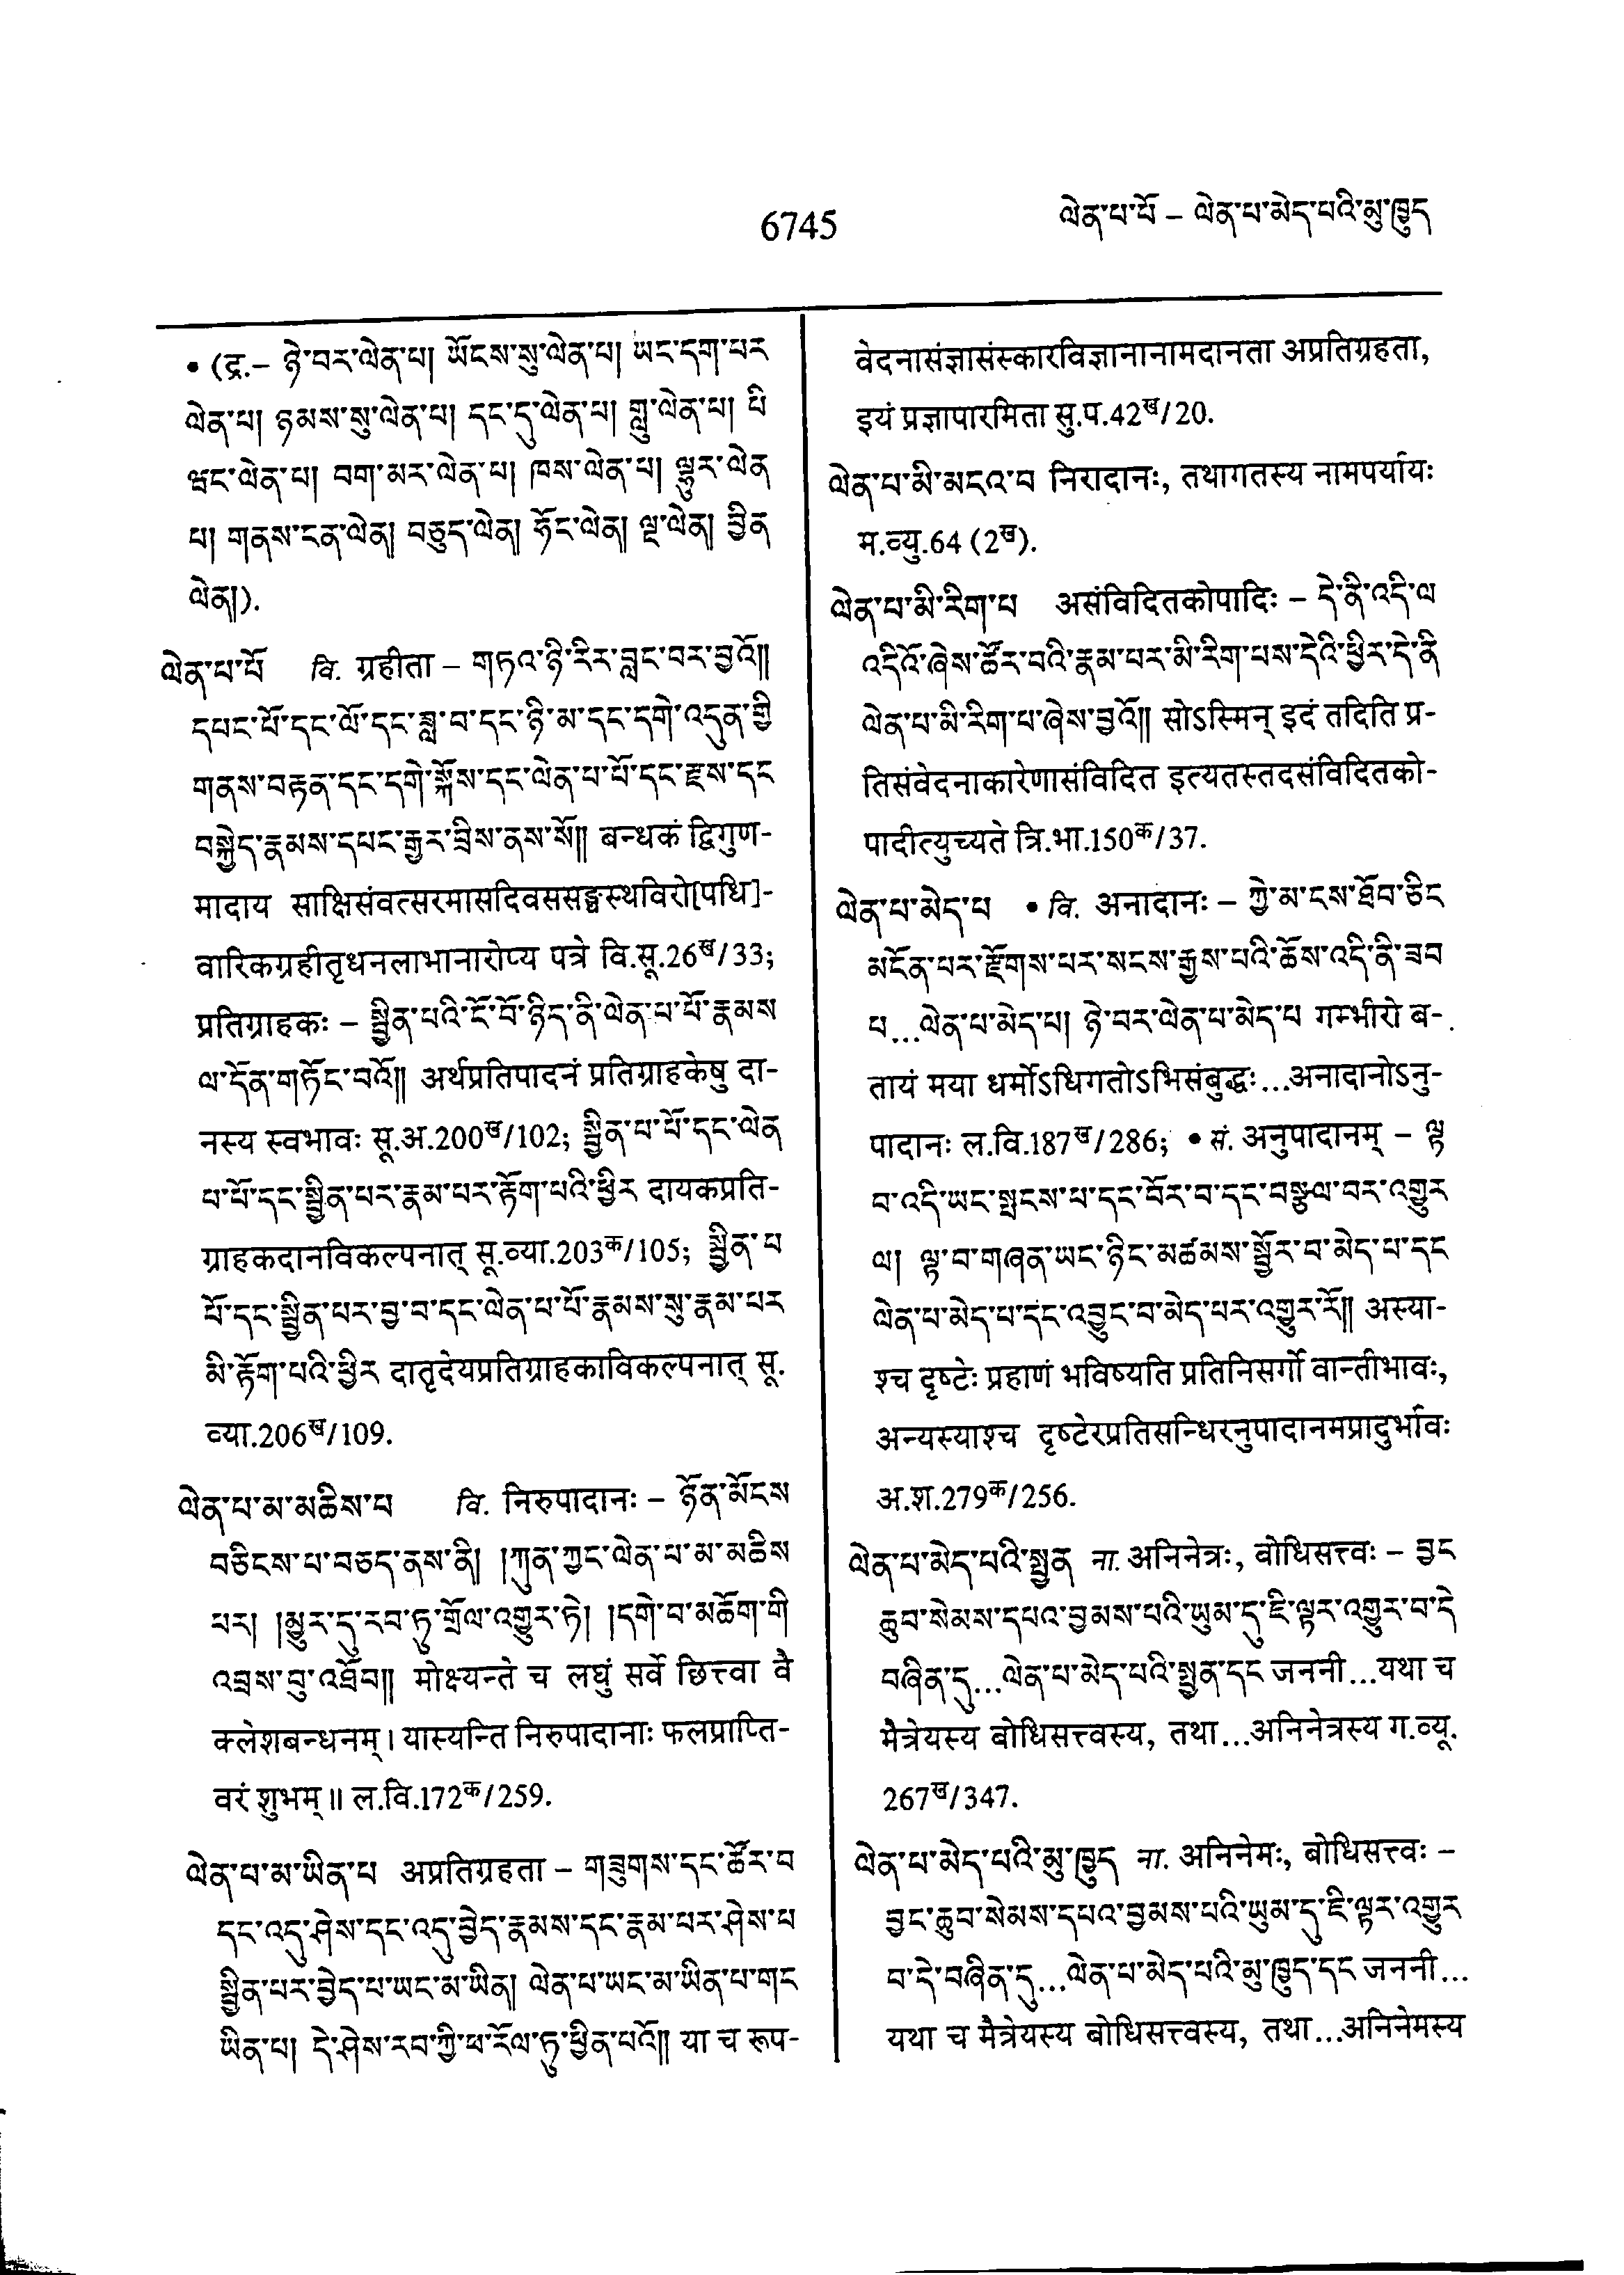 6745
ལེན་པ་པོ – ལེན་པ་མེད་པའི་མུ་ཁྱུད
• (द्र.– ཉེ་བར་ལེན་པ། ཡོངས་སུ་ལེན་པ། ཡང་དག་པར
ལེན་པ། ཉམས་སུ་ལེན་པ། དང་དུ་ལེན་པ། གླུ་ལེན་པ། པི
ཝང་ལེན་པ། བག་མར་ལེན་པ། ཁས་ལེན་པ། ལྷུར་ལེན
པ། གནས་ངན་ལེན། བཅུད་ལེན། ཧོང་ལེན། ལྔ་ལེན། བྱིན
ལེན།).
ལེན་པ་པོ वि. ग्रहीता – གཏའ་ཉི་རིར་བླང་བར་བྱའོ༎
དཔང་པོ་དང་ལོ་དང་ཟླ་བ་དང་ཉི་མ་དང་དགེ་འདུན་གྱི
གནས་བརྟན་དང་དགེ་སྐོས་དང་ལེན་པ་པོ་དང་རྫས་དང
བསྐྱེད་རྣམས་དཔང་རྒྱར་བྲིས་ནས་སོ༎ बन्धकं द्विगुण-
मादाय साक्षिसंवत्सरमासदिवससङ्घस्थविरो[पधि]-
वारिकग्रहीतृधनलाभानारोप्य पत्रे वि.सू.26ख/33;
प्रतिग्राहकः – སྦྱིན་པའི་ངོ་བོ་ཉིད་ནི་ལེན་པ་པོ་རྣམས
ལ་དོན་གཏོང་བའོ༎ अर्थप्रतिपादनं प्रतिग्राहकेषु दा-
नस्य स्वभावः सू.अ.200ख/102; སྦྱིན་པ་པོ་དང་ལེན
པ་པོ་དང་སྦྱིན་པར་རྣམ་པར་རྟོག་པའི་ཕྱིར दायकप्रति-
ग्राहकदानविकल्पनात् सू.व्या.203क/105; སྦྱིན་པ
པོ་དང་སྦྱིན་པར་བྱ་བ་དང་ལེན་པ་པོ་རྣམས་སུ་རྣམ་པར
མི་རྟོག་པའི་ཕྱིར दातृदेयप्रतिग्राहकाविकल्पनात् सू.
व्या.206ख/109.
ལེན་པ་མ་མཆིས་པ वि. निरुपादानः – ཉོན་མོངས
བཅིངས་པ་བཅད་ནས་ནི། །ཀུན་ཀྱང་ལེན་པ་མ་མཆིས
པར། །མྱུར་དུ་རབ་ཏུ་གྲོལ་འགྱུར་ཏེ། །དགེ་བ་མཆོག་གི
འབྲས་བུ་འཐོབ༎ मोक्ष्यन्ते च लघुं सर्वे छित्त्वा वै
क्लेशबन्धनम्। यास्यन्ति निरुपादानाः फलप्राप्ति-
वरं शुभम्॥ ल.वि.172क/259.
ལེན་པ་མ་ཡིན་པ अप्रतिग्रहता – གཟུགས་དང་ཚོར་བ
དང་འདུ་ཤེས་དང་འདུ་བྱེད་རྣམས་དང་རྣམ་པར་ཤེས་པ
སྦྱིན་པར་བྱེད་པ་ཡང་མ་ཡིན། ལེན་པ་ཡང་མ་ཡིན་པ་གང
ཡིན་པ། དེ་ཤེས་རབ་ཀྱི་ཕ་རོལ་ཏུ་ཕྱིན་པའོ༎ या च रूप-
वेदनासंज्ञासंस्कारविज्ञानानामदानता अप्रतिग्रहता,
इयं प्रज्ञापारमिता सु.प.42ख/20.
ལེན་པ་མི་མངའ་བ निरादानः, तथागतस्य नामपर्यायः
म.व्यु.64 (2ख).
ལེན་པ་མི་རིག་པ असंविदितकोपादिः – དེ་ནི་འདི་ལ
འདིའོ་ཞེས་ཚོར་བའི་རྣམ་པར་མི་རིག་པས་དེའི་ཕྱིར་དེ་ནི
ལེན་པ་མི་རིག་པ་ཞེས་བྱའོ༎ सोऽस्मिन् इदं तदिति प्र-
तिसंवेदनाकारेणासंविदित इत्यतस्तदसंविदितको-
पादीत्युच्यते त्रि.भा.150क/37.
ལེན་པ་མེད་པ • वि. अनादानः – ཀྱེ་མ་ངས་ཐོབ་ཅིང
མངོན་པར་རྫོགས་པར་སངས་རྒྱས་པའི་ཆོས་འདི་ནི་ཟབ
པ...ལེན་པ་མེད་པ། ཉེ་བར་ལེན་པ་མེད་པ गम्भीरो ब-
तायं मया धर्मोऽधिगतोऽभिसंबुद्धः...अनादानोऽनु-
पादानः ल.वि.187ख/286; • सं. अनुपादानम् – ལྟ
བ་འདི་ཡང་སྤངས་པ་དང་བོར་བ་དང་བསྩལ་བར་འགྱུར
ལ། ལྟ་བ་གཞན་ཡང་ཉིང་མཚམས་སྦྱོར་བ་མེད་པ་དང
ལེན་པ་མེད་པ་དང་འབྱུང་བ་མེད་པར་འགྱུར་རོ༎ अस्या-
श्च दृष्टेः प्रहाणं भविष्यति प्रतिनिसर्गो वान्तीभावः,
अन्यस्याश्च दृष्टेरप्रतिसन्धिरनुपादानमप्रादुर्भावः
अ.श.279क/256.
ལེན་པ་མེད་པའི་སྤྱན ना. अनिनेत्रः, बोधिसत्त्वः – བྱང
ཆུབ་སེམས་དཔའ་བྱམས་པའི་ཡུམ་དུ་ཇི་ལྟར་འགྱུར་བ་དེ
བཞིན་དུ...ལེན་པ་མེད་པའི་སྤྱན་དང जननी...यथा च
मैत्रेयस्य बोधिसत्त्वस्य, तथा...अनिनेत्रस्य ग.व्यू.
267ख/347.
ལེན་པ་མེད་པའི་མུ་ཁྱུད ना. अनिनेमः, बोधिसत्त्वः –
བྱང་ཆུབ་སེམས་དཔའ་བྱམས་པའི་ཡུམ་དུ་ཇི་ལྟར་འགྱུར
བ་དེ་བཞིན་དུ...ལེན་པ་མེད་པའི་མུ་ཁྱུད་དང जननी...
यथा च मैत्रेयस्य बोधिसत्त्वस्य, तथा...अनिनेमस्य